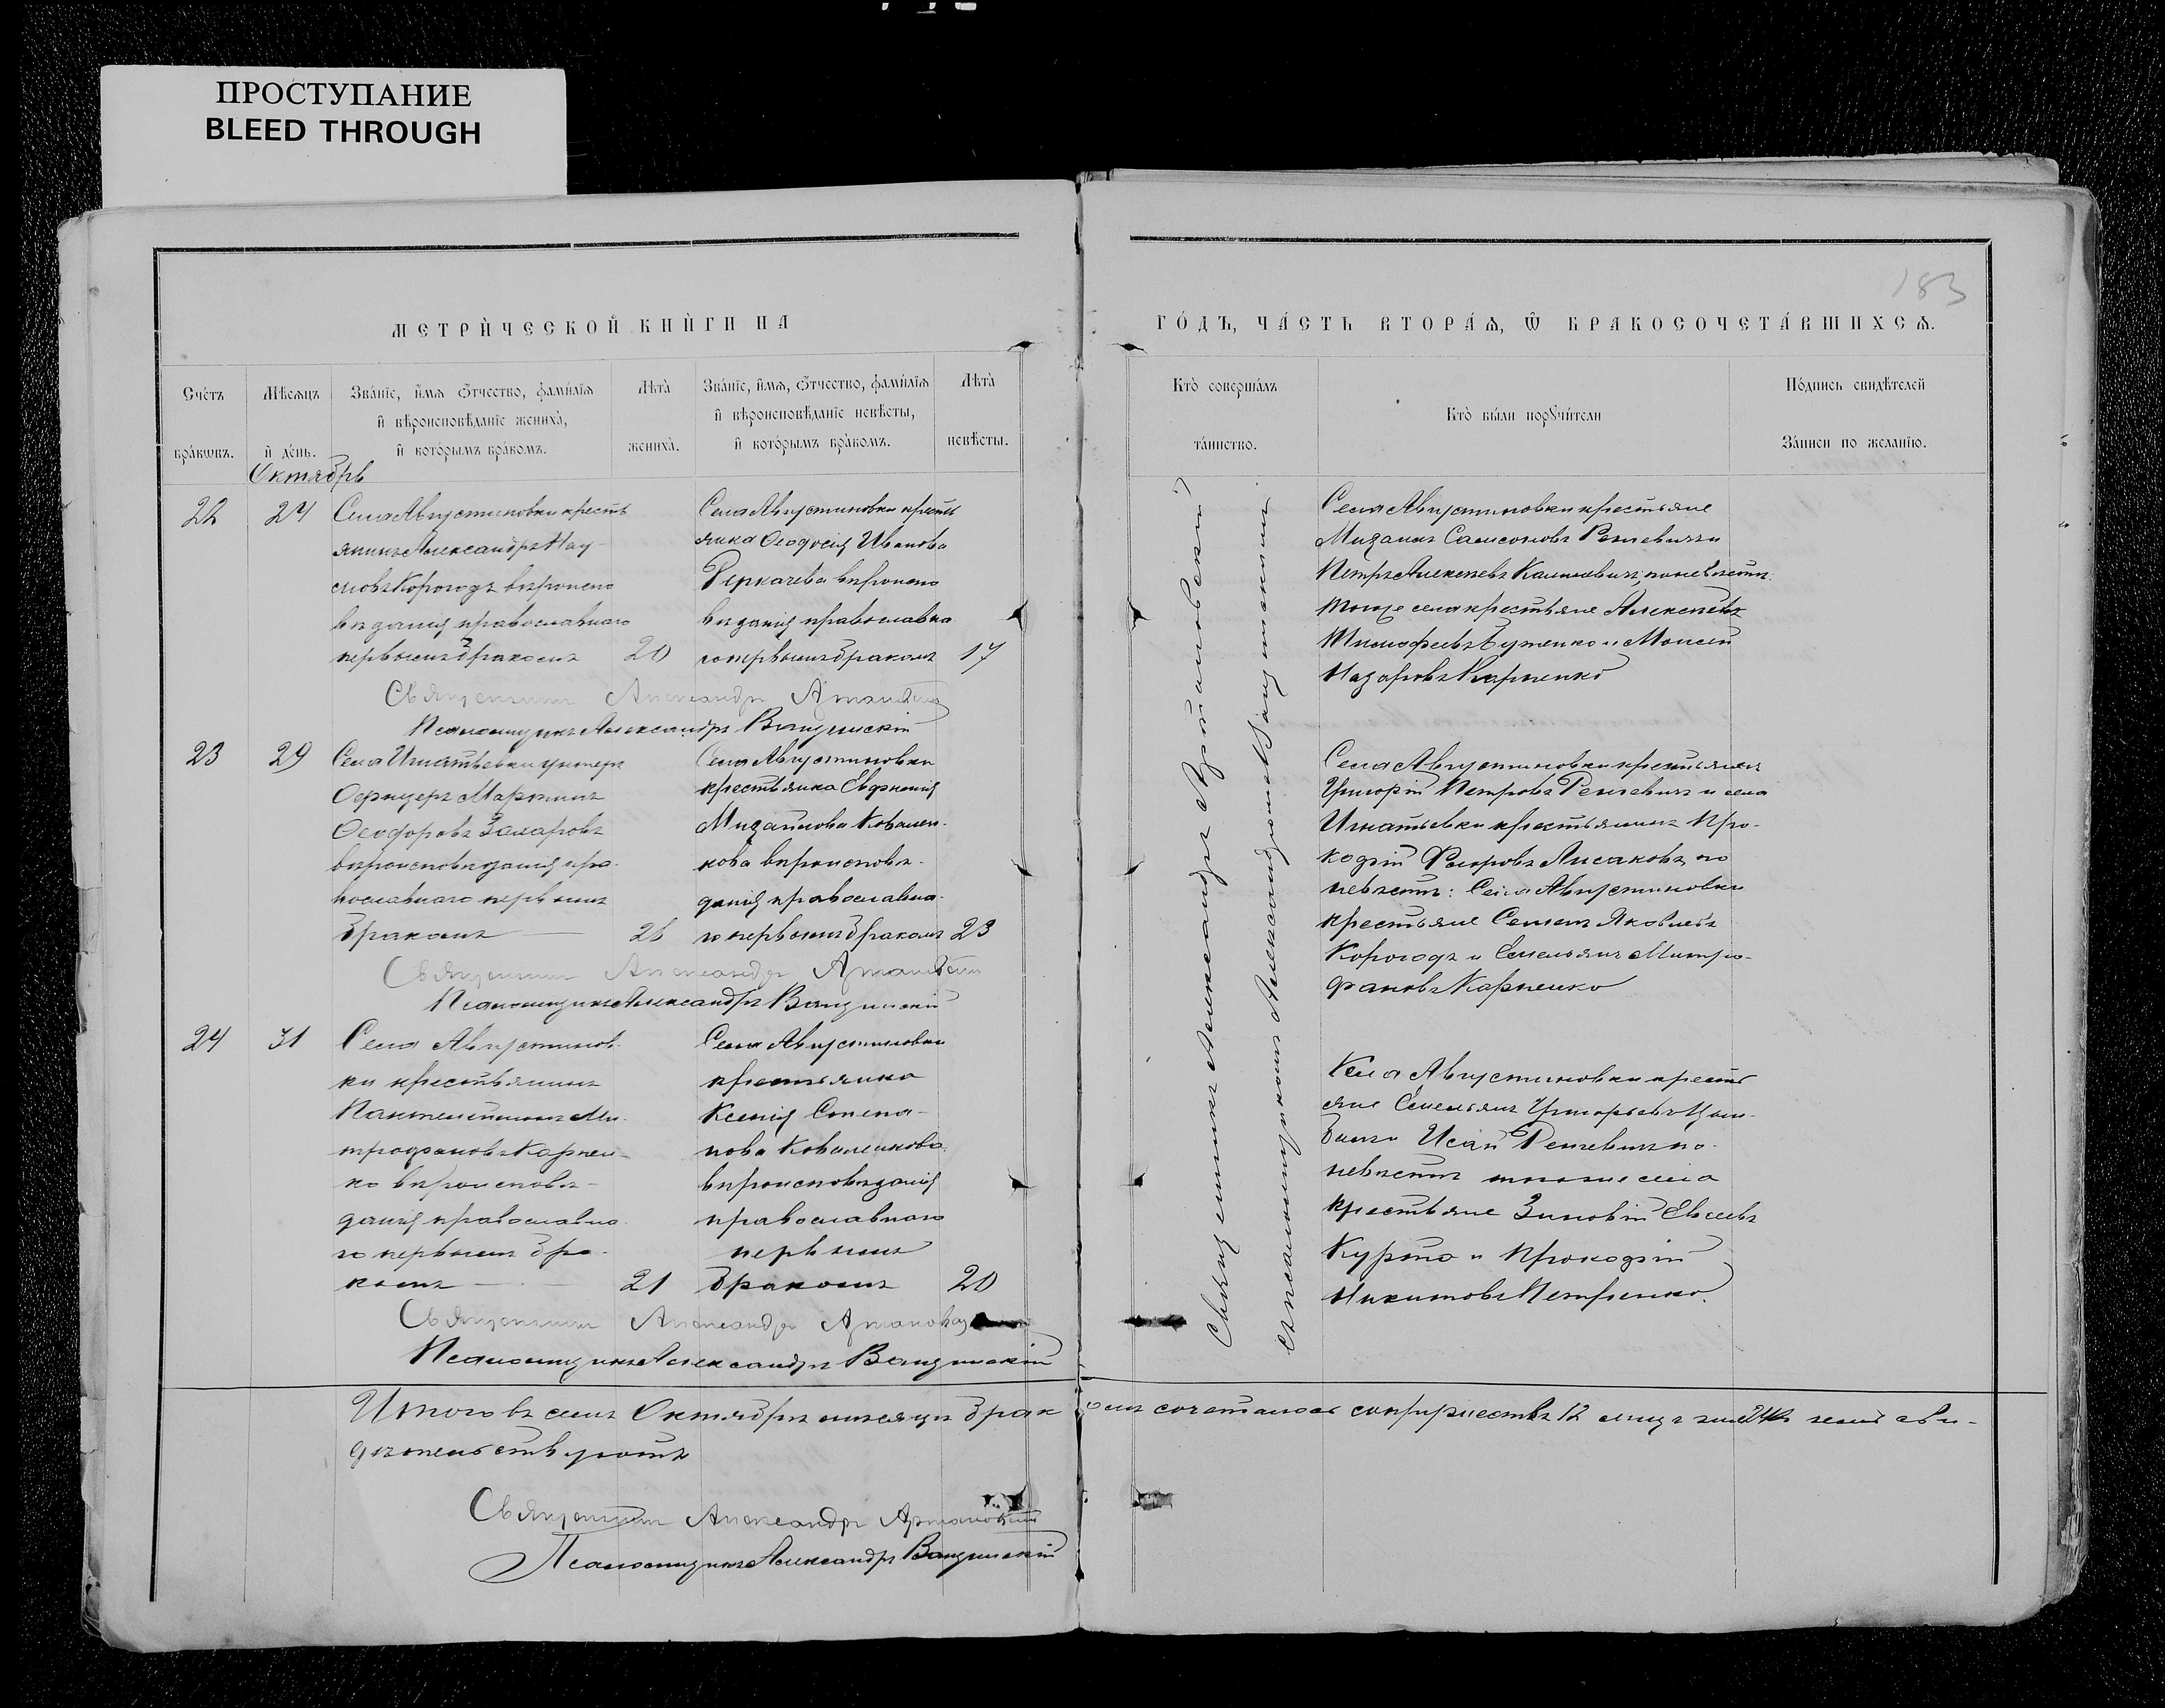 ПРОСТУПАНИЕ
BLEED THROUGH
183
МЕТРИ́ЧЕСКОЙ КНИ́ГИ НА
ГО́ДЪ, ЧА́СТЬ ВТОРА́Ѧ, Ѿ БРАКОСОЧЕТА́ВШИХСѦ.
Сче́тъ бра́кωвъ.
Мѣ́сѧцъ и де́нь.
Зва́нїе, и́мѧ ѻ́тчество, фами́лїѧ и вѣроисповѣ́данїе жениха̀, и кото́рымъ бра́комъ.
Лѣта̀ жениха̀.
Зва́нїе, и́мѧ, ѻ́тчество, фами́лїѧ и вѣроисповѣ́данїе невѣ́сты, и кото́рымъ бра́комъ.
Лѣта̀ невѣ́сты.
Кто̀ соверша́лъ та́инство.
Кто̀ бы́ли порꙋчи́тели
По́дпись свидѣ́телей За́писи по жела́нїю.
Октябрь
22
24
Села Августиновки кресть
янинъ Александръ Нау-
мовъ Корогодъ вѣроиспо
вѣданія православнаго
первымъ бракомъ
20
Села Августиновки кресть
янка Ѳеодосія Иванова
Деркачева вѣроиспо
вѣданія православна
го первымъ бракомъ
17
Села Августиновки крестьяне
Петръ Алексѣевъ по невѣстѣ:
того же села крестьяне Алексѣй
Тимофеевъ и Моисей
Назаровъ Карпенко
Священникъ Александръ
Псаломщикъ Александръ
23
29
Села Игнатьевки унтеръ
Офицеръ Мартинъ
Ѳеодоровъ Захаровъ
вѣроисповѣданія пра-
вославнаго первымъ
бракомъ
26
Села Августиновки
крестьянка Евфимія
Михайлова Ковален-
кова вѣроисповѣ-
данія православна-
го первымъ бракомъ
23
Села Августиновки крестьянинъ
Григорій Петровъ и села
Игнатьевки крестьянинъ Про-
кофій Лисаковъ, по
невѣстѣ: Села Августиновки
крестьяне Семенъ Яковлевъ
Корогодъ и Емельянъ Митро-
фановъ Карпенко
Священникъ Александръ
Псаломщикъ Александръ
24
31
Села Августинов-
ки крестьянинъ
Пантелеймонъ Ми-
трофановъ Карпен-
ко вѣроисповѣ-
данія православна
го первымъ бра-
комъ
21
Села Августиновки
крестьянка
Ксенія Степа-
нова Коваленкова
вѣроисповѣданія
православнаго
первымъ
бракомъ
20
Села Августиновки кресть
яне Емельянъ Григорьевъ
Исай по
невѣстѣ того же села
крестьяне Зиновій Евсеевъ
Курто и Прокофій
Никитовъ Петренко.
Священникъ Александръ
Псаломщикъ Александръ
Священникъ Александръ
съ псаломщикомъ Александромъ
Итого въ семъ Октябрѣ мѣсяцѣ брак
омъ сочеталось супружествъ 12 лицъ 24 въ чемъ сви-
дѣтельствуютъ
Священникъ Александръ
Псаломщикъ Александръ